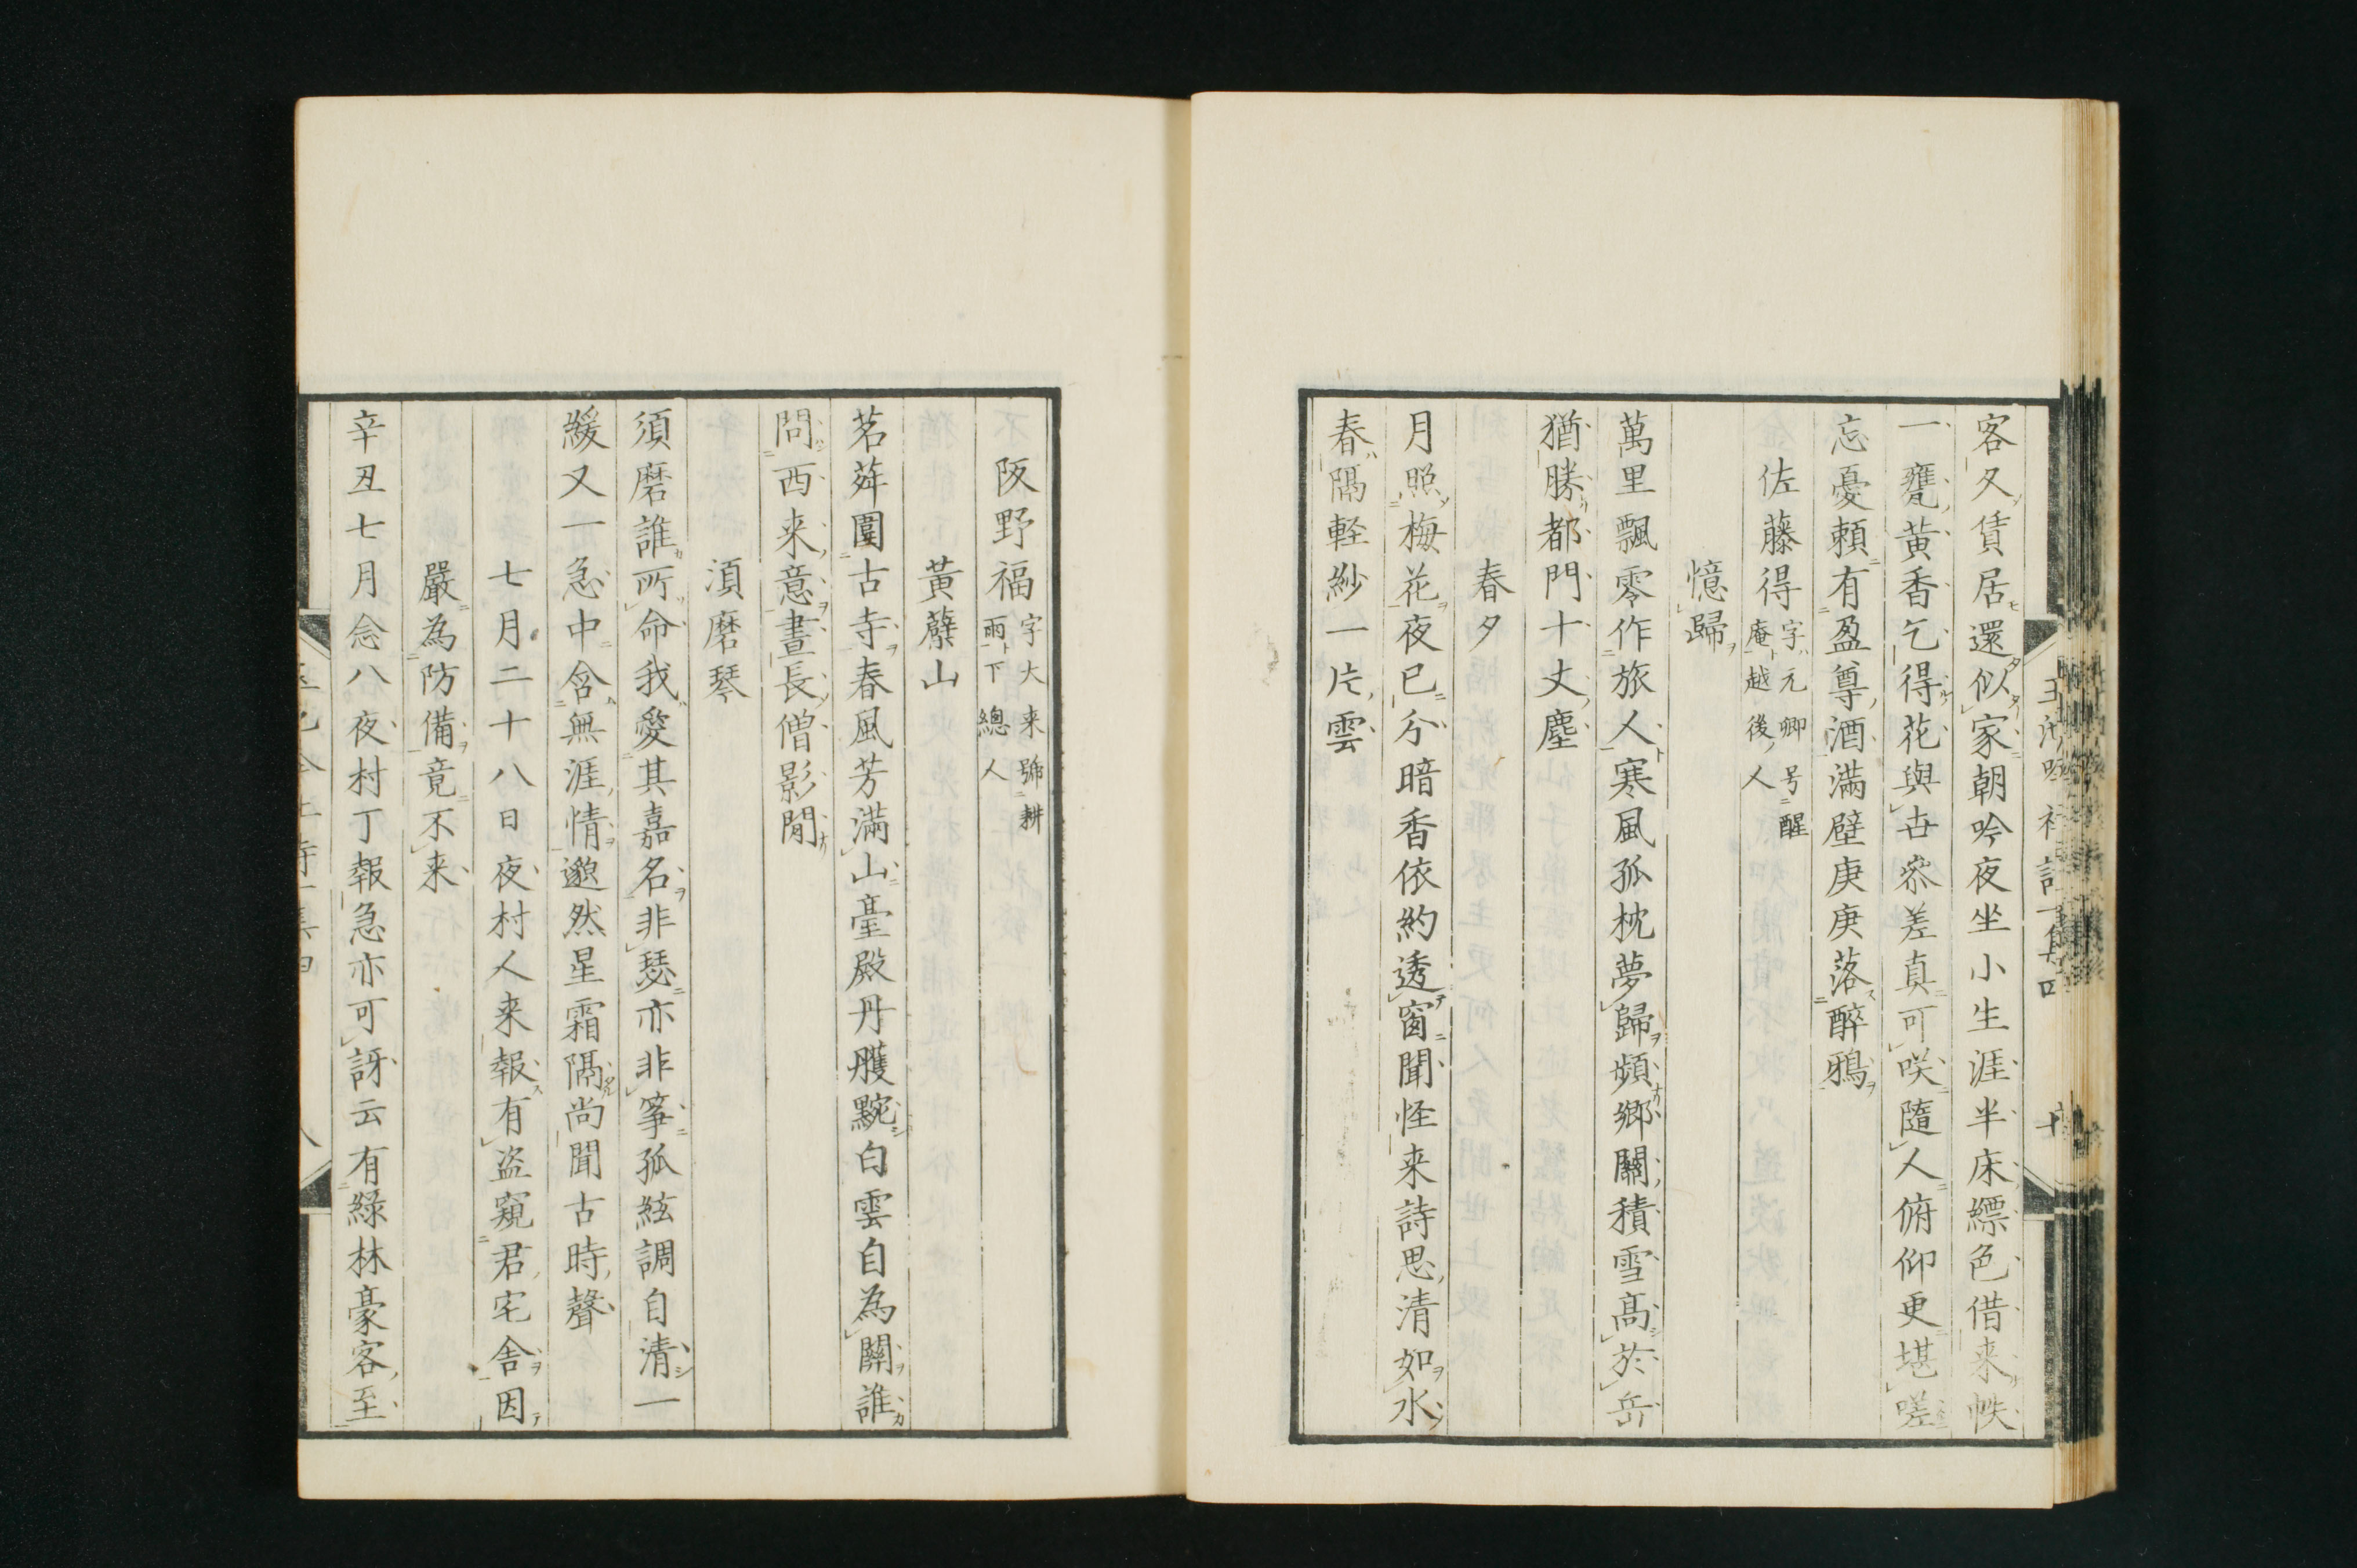 客又賃居還似家朝吟夜坐小生涯半床縹色借来帙
一甕黄香乞得花與古參差真可咲隨人俯仰更堪嗟
忘憂頼有盈尊酒満壁庚庚落醉鴉
佐藤得字元卿号醒
庵越後人
憶歸
萬里飄零作旅人寒風孤枕夢歸頻郷關積雪高於岳
猶勝都門十丈塵
春夕
月照梅花夜已分暗香依約透窗聞怪来詩思清如水
春隔軽紗一片雲
阪野福字大来號耕
雨下總人
黄蘗山
茗荈圍古寺春風芳満山臺殿丹雘黦白雲自為關誰
問西来意晝長僧影閒
須磨琴
須磨誰所命我愛其嘉名非瑟亦非箏孤絃調自清一
緩又一急中含無涯情邈然星霜隔尚聞古時聲
七月二十八日夜村人来報有盗窺君宅舎因
嚴為防備竟不来
辛丑七月念八夜村丁報急亦可訝云有緑林豪客至